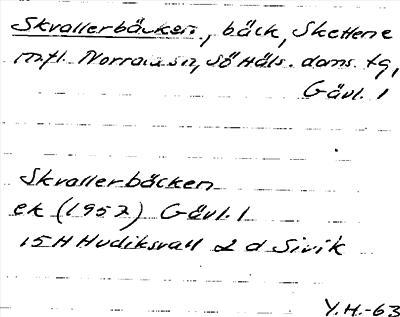 Skvallerbäcken, bäck, Skettene
mfl. Norrala sn, Sö Häls. doms. tg,
Gävl. l
Skvallerbäcken
ek (1957) Gävl. l
15H Hudiksvall 2 d Sivik
Y.H.-63